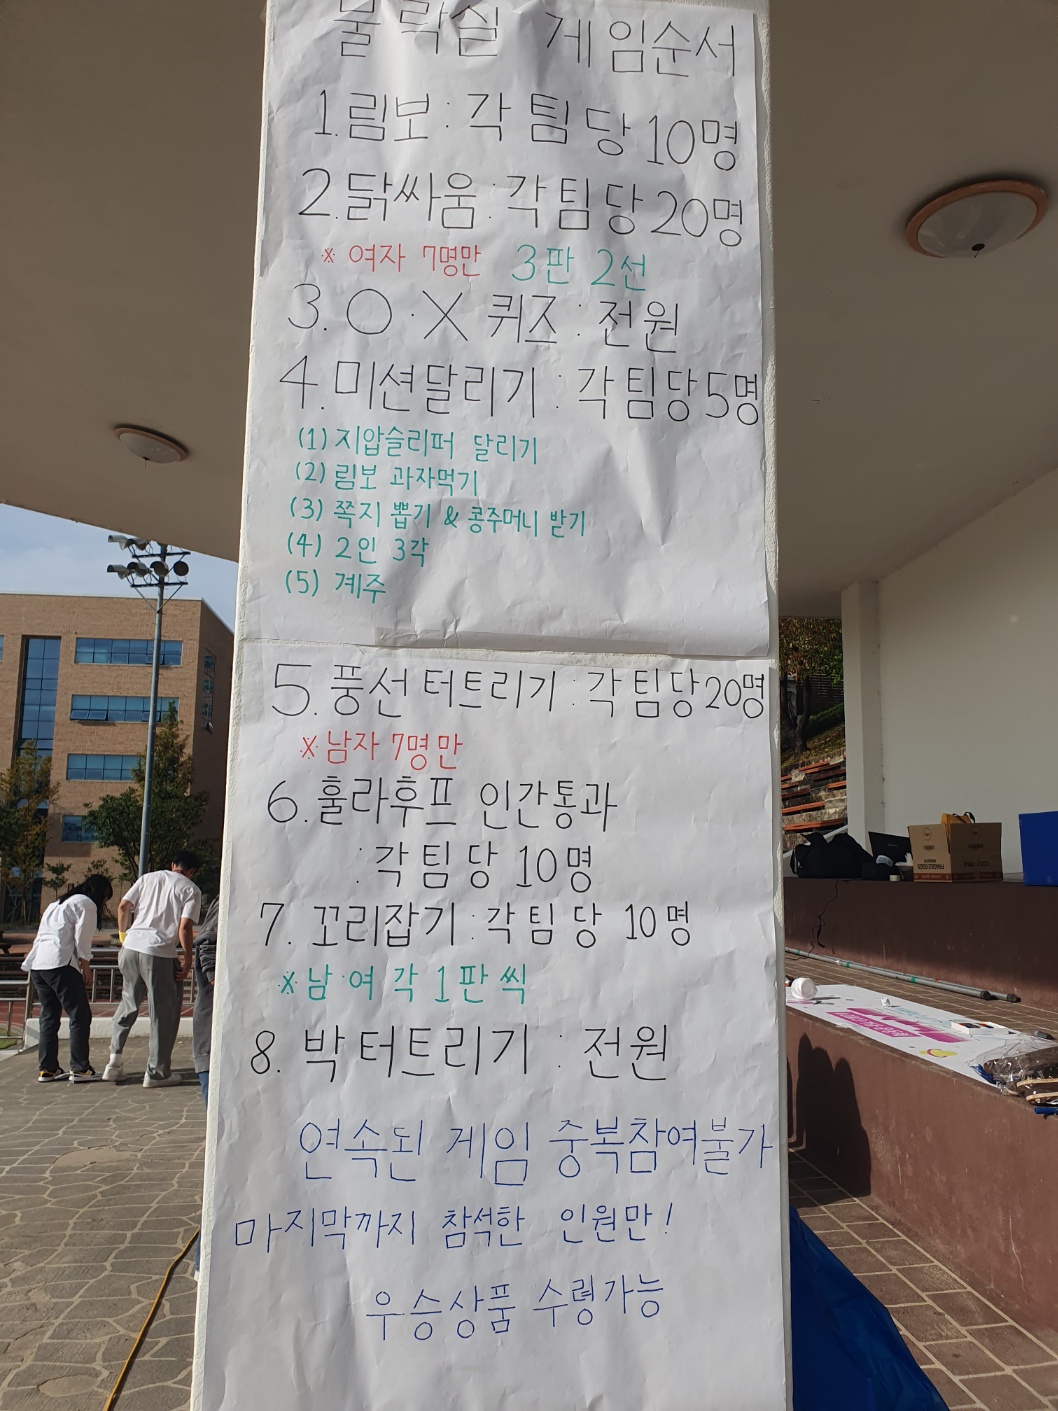 물락실 게임순서
1. 림보 : 각 팀 당 10명
2. 닭싸움 : 각 팀 당 20명
※ 여자 7명만 3판 2선
3. O · X 퀴즈 : 전원
4. 미션달리기 : 각 팀당 5명
(1) 지압슬리퍼 달리기
(2) 림보 과자먹기
(3) 쪽지 뽑기 & 콩주머니 받기
(4) 2인 3각
(5) 계주
5. 풍선 터트리기 : 각 팀당 20명
※ 남자 7명만
6. 훌라후프 인간통과
: 각 팀 당 10명
7. 꼬리잡기 : 각 팀 당 10명
※ 남 여 각 1판 씩
8. 박 터트리기 : 전원
연속된 게임 중복참여불가
마지막까지 참석한 인원만!
우승상품 수령가능